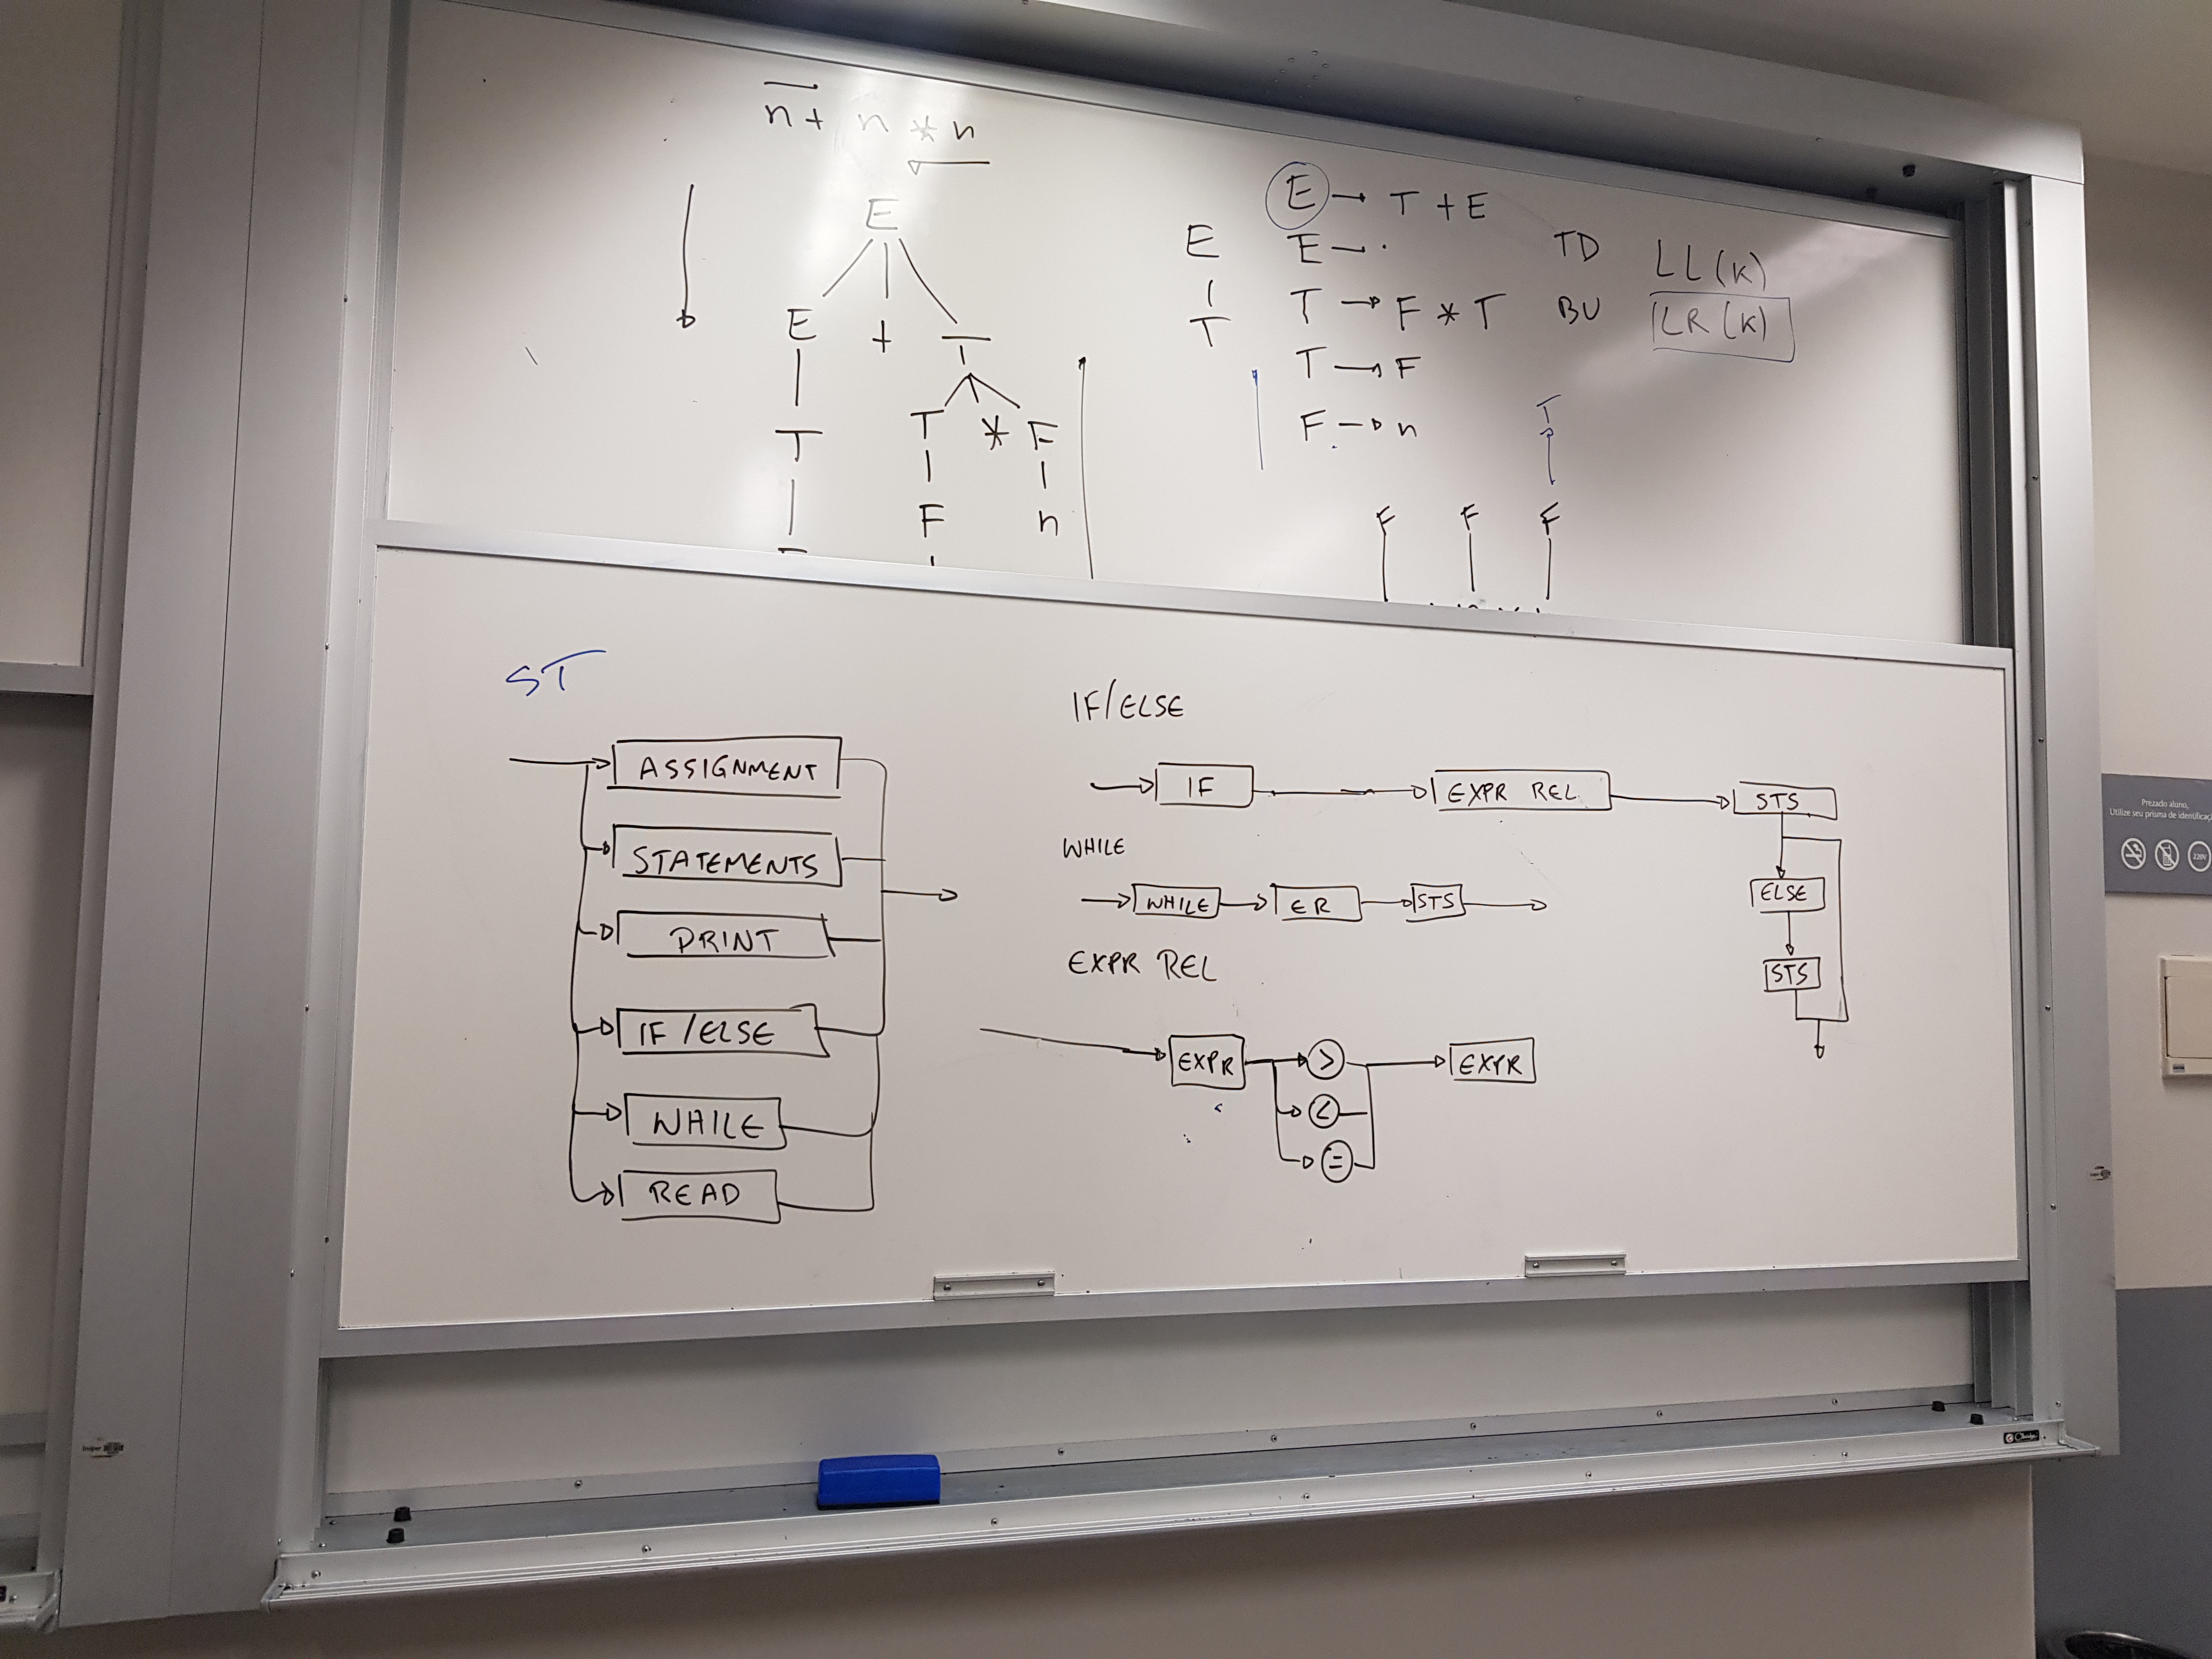 n + n * n
E
E + T
T T * F
F n
E → T + E
E → .
T → F * T
T → F
F → n
E
T
TD LL(K)
BU LR(K)
T
F F F
ST
ASSIGNMENT
STATEMENTS
PRINT
IF/ELSE
WHILE
READ
IF/ELSE
IF EXPR REL STS
ELSE
STS
WHILE
WHILE ER STS
EXPR REL
EXPR > EXPR
<
=
Prezado aluno,
Utilize seu prisma de
220V